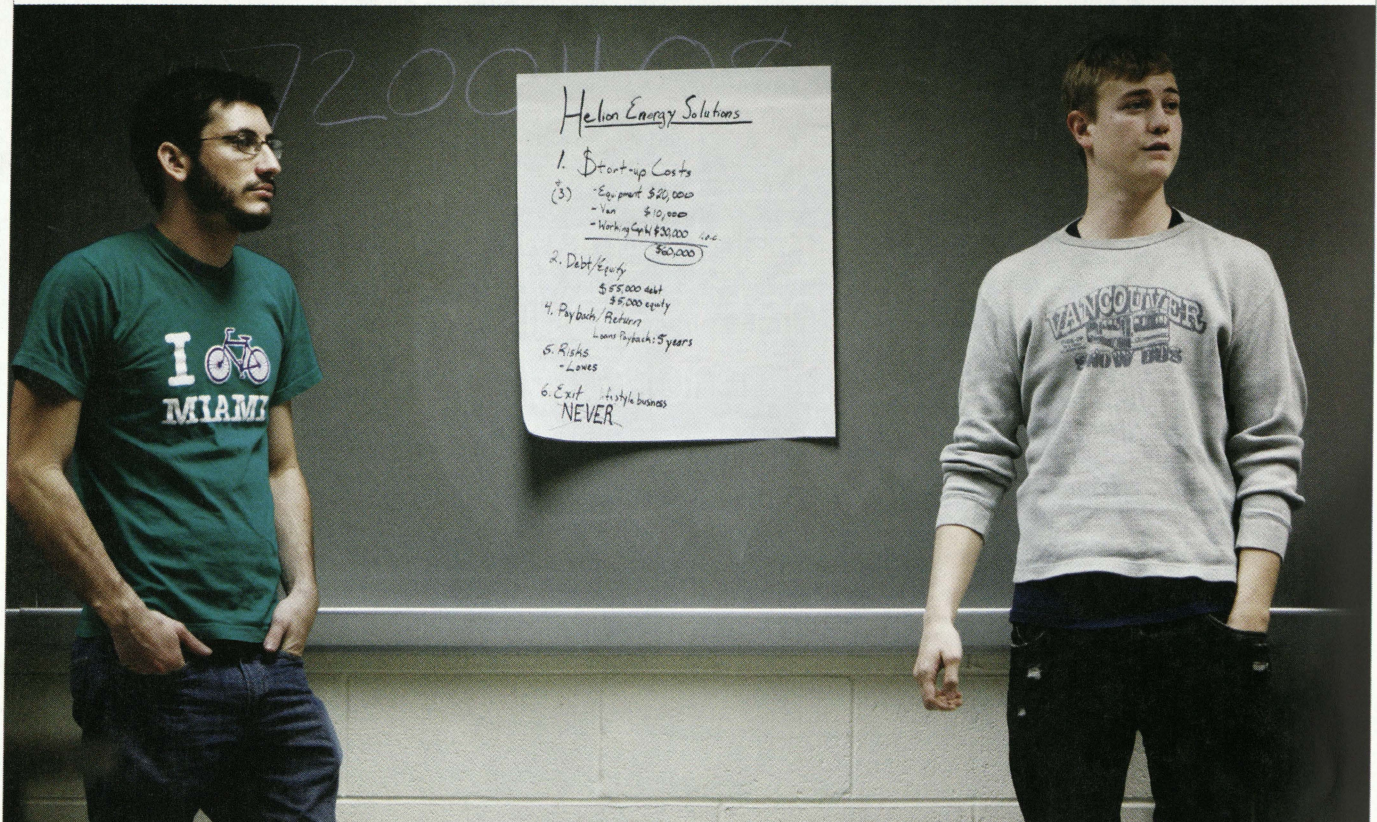 7200
Helion Energy Solutions
1. $tart-up Costs
+
(3)
- Equipment $20,000
- Van $10,000
- Working Capital $30,000
$60,000
2. Debt/Equity
$55,000 debt
$5,000 equity
4. Payback/Return
Loans Payback: 5 years
5. Risks
- Lowes
6. Exit lifestyle business
NEVER
I
MIAMI
VANCOUVER
SNOW BUS